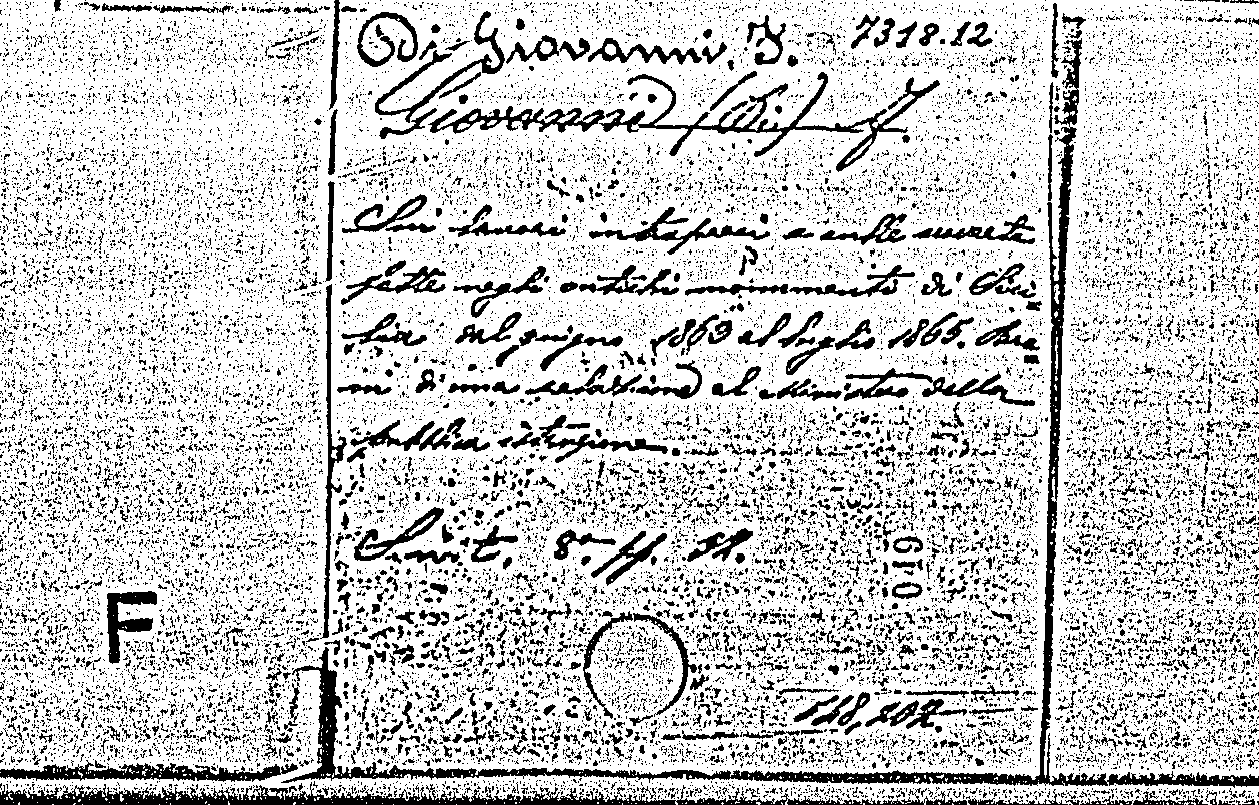 Di Giovanni, J. 7318.12
Giovanni (Di) J.
Sui lavori intrapresi e sulle scoverte
fatte negli antichi monumenti di Sici=
lia dal giugno 1863 al luglio 1865. Bra=
ni di una relazione al Ministro della
pubblica istruzione.
8° pp. 32.
019
F